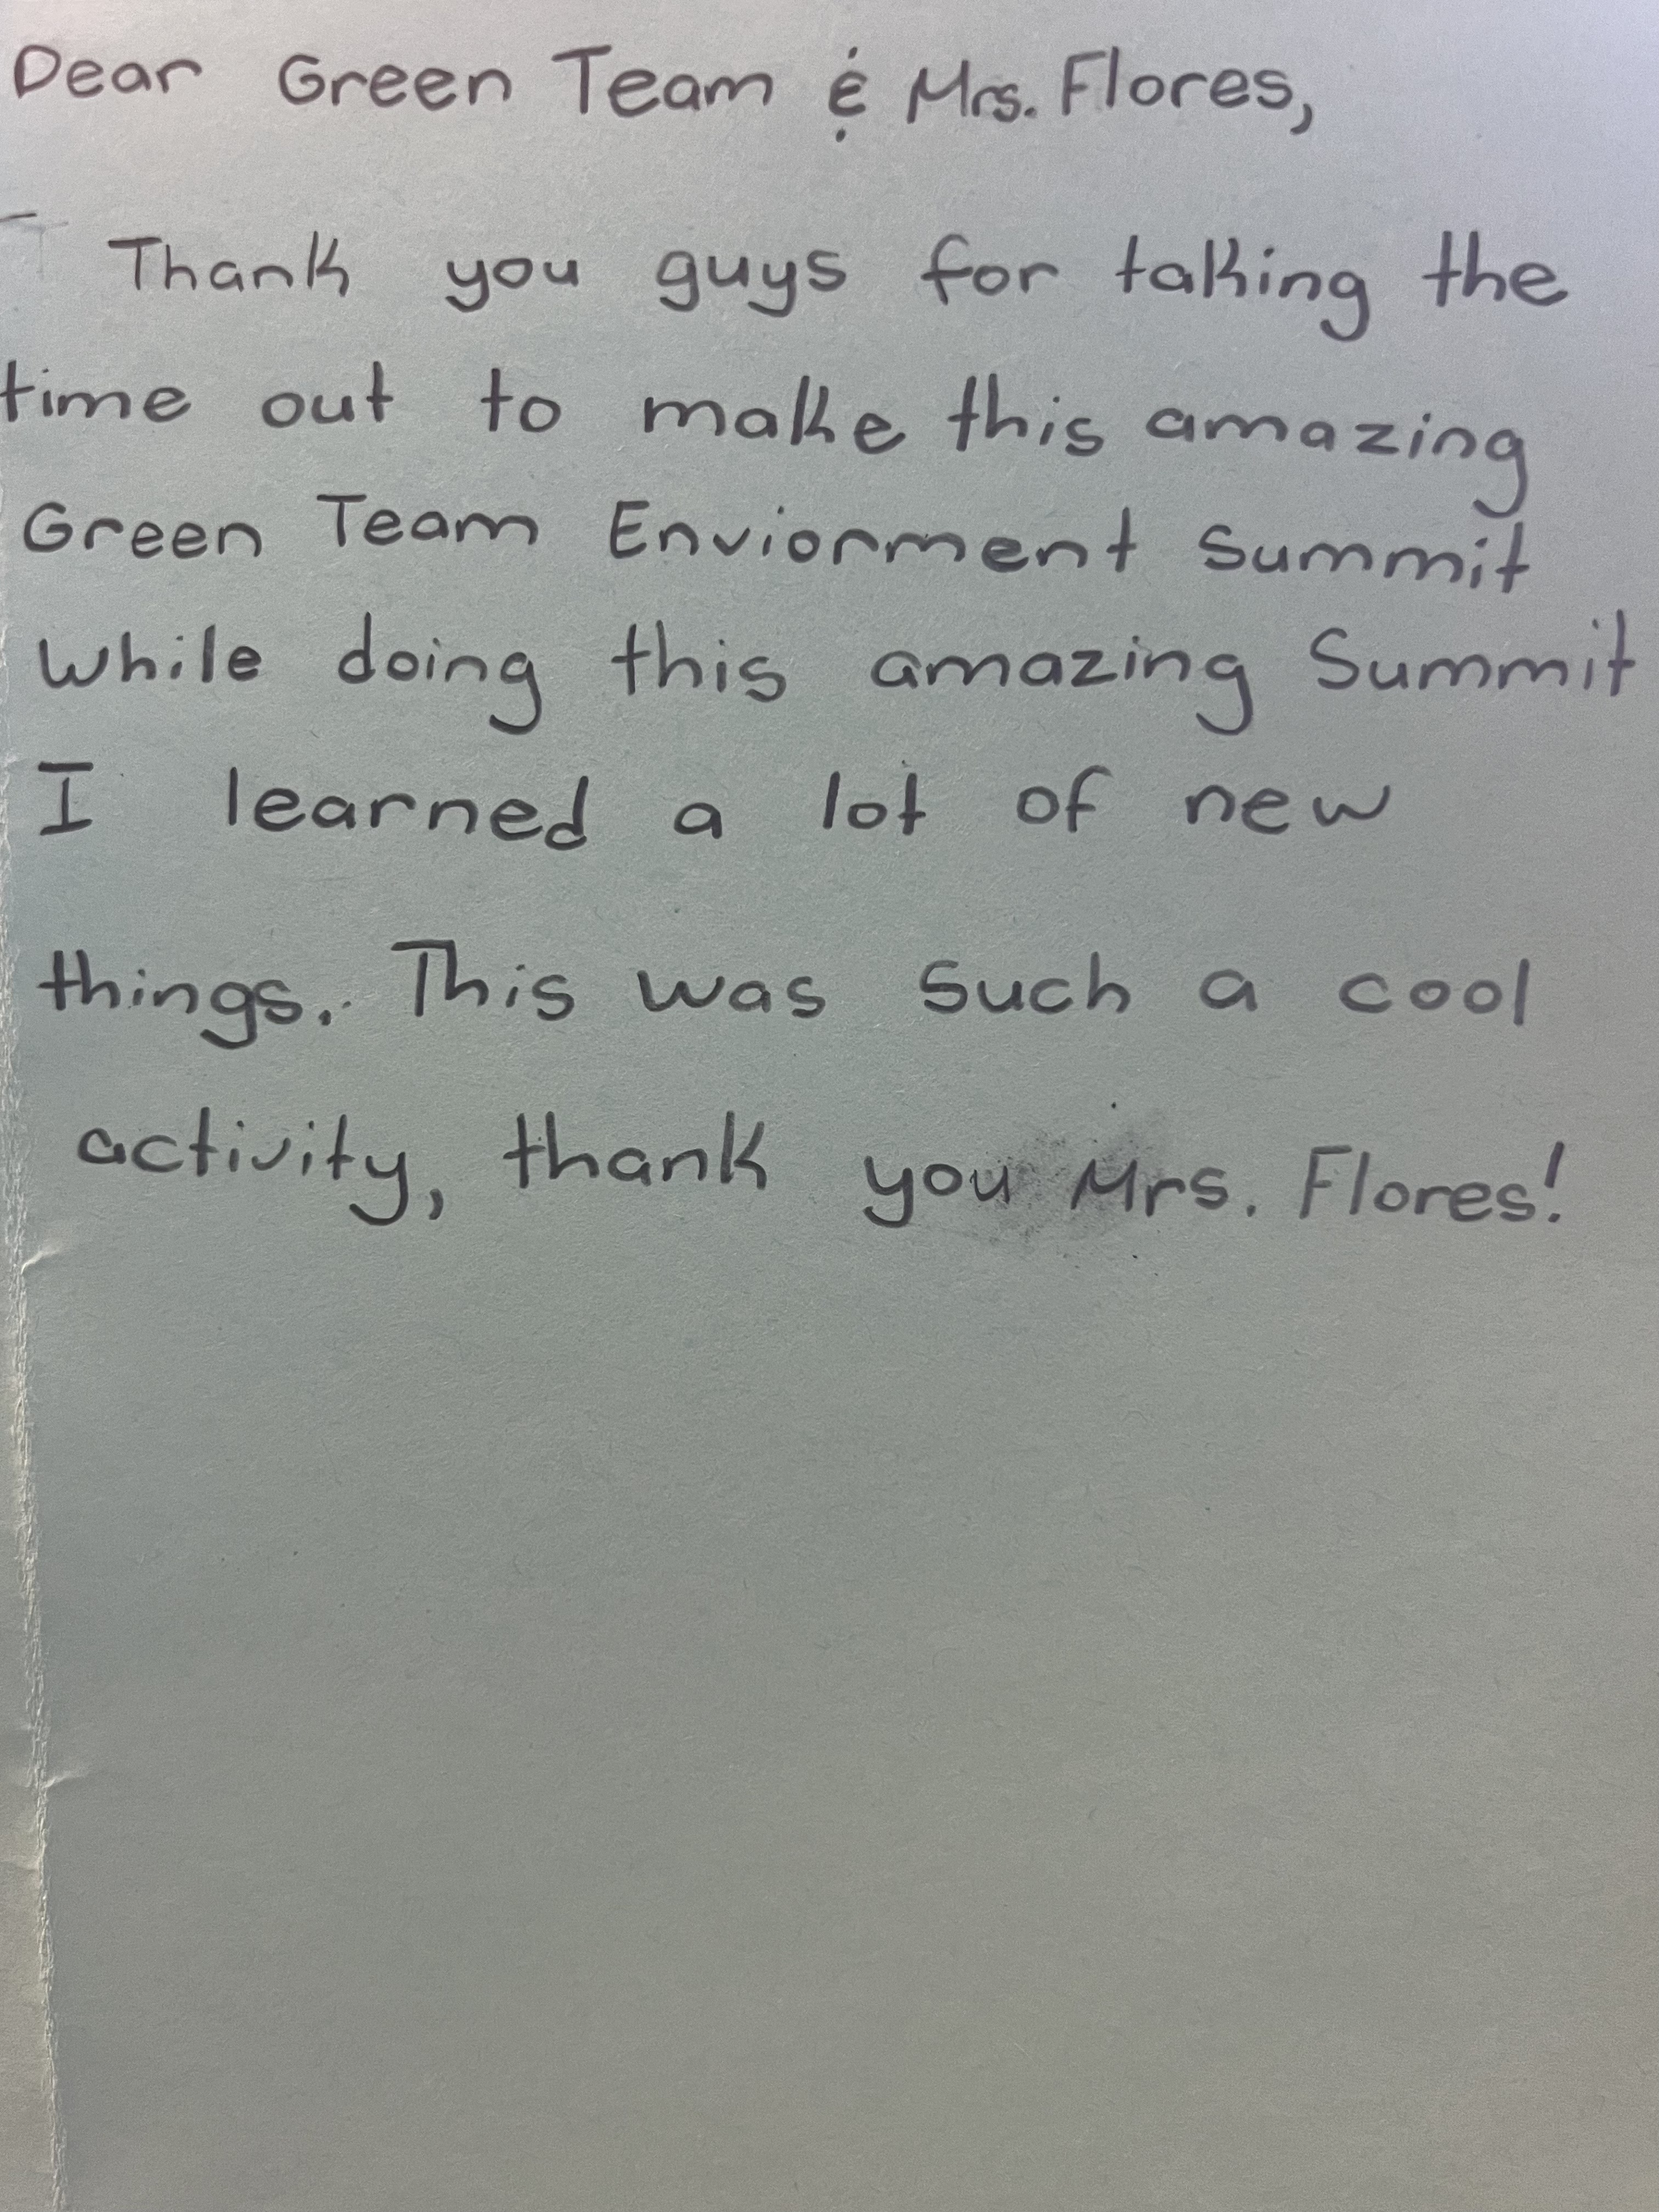 Dear Green Team & Mrs. Flores,
Thank you guys for taking the
time out to make this amazing
Green Team Enviorment Summit
while doing this amazing Summit
I learned a lot of new
things. This was such a cool
activity, thank you Mrs. Flores!